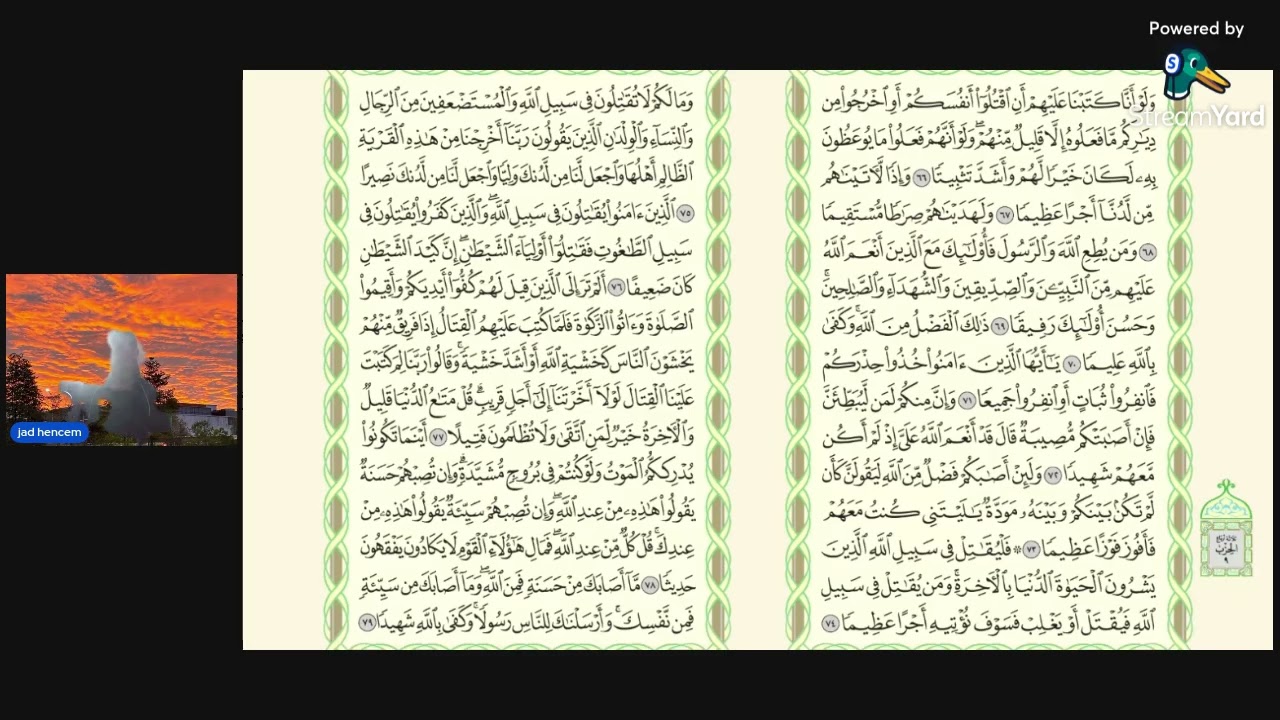 Powered by
StreamYard
وَلَوْ أَنَّا كَتَبْنَا عَلَيْهِمْ أَنِ ٱقْتُلُوٓا۟ أَنفُسَكُمْ أَوِ ٱخْرُجُوا۟ مِن
دِيَـٰرِكُم مَّا فَعَلُوهُ إِلَّا قَلِيلٌ مِّنْهُمْ ۖ وَلَوْ أَنَّهُمْ فَعَلُوا۟ مَا يُوعَظُونَ
بِهِۦ لَكَانَ خَيْرًا لَّهُمْ وَأَشَدَّ تَثْبِيتًا ٦٦ وَإِذًا لَّـَٔاتَيْنَـٰهُم
مِّن لَّدُنَّآ أَجْرًا عَظِيمًا ٦٧ وَلَهَدَيْنَـٰهُمْ صِرَٰطًا مُّسْتَقِيمًا
٦٨ وَمَن يُطِعِ ٱللَّهَ وَٱلرَّسُولَ فَأُو۟لَـٰٓئِكَ مَعَ ٱلَّذِينَ أَنْعَمَ ٱللَّهُ
عَلَيْهِم مِّنَ ٱلنَّبِيِّـۧنَ وَٱلصِّدِّيقِينَ وَٱلشُّهَدَآءِ وَٱلصَّـٰلِحِينَ ۚ
وَحَسُنَ أُو۟لَـٰٓئِكَ رَفِيقًا ٦٩ ذَٰلِكَ ٱلْفَضْلُ مِنَ ٱللَّهِ ۚ وَكَفَىٰ
بِٱللَّهِ عَلِيمًا ٧٠ يَـٰٓأَيُّهَا ٱلَّذِينَ ءَامَنُوا۟ خُذُوا۟ حِذْرَكُمْ
فَٱنفِرُوا۟ ثُبَاتٍ أَوِ ٱنفِرُوا۟ جَمِيعًا ٧١ وَإِنَّ مِنكُمْ لَمَن لَّيُبَطِّئَنَّ
فَإِنْ أَصَـٰبَتْكُم مُّصِيبَةٌ قَالَ قَدْ أَنْعَمَ ٱللَّهُ عَلَىَّ إِذْ لَمْ أَكُن
مَّعَهُمْ شَهِيدًا ٧٢ وَلَئِنْ أَصَـٰبَكُمْ فَضْلٌ مِّنَ ٱللَّهِ لَيَقُولَنَّ كَأَن
لَّمْ تَكُنۢ بَيْنَكُمْ وَبَيْنَهُۥ مَوَدَّةٌ يَـٰلَيْتَنِى كُنتُ مَعَهُمْ
فَأَفُوزَ فَوْزًا عَظِيمًا ٧٣ ۞ فَلْيُقَـٰتِلْ فِى سَبِيلِ ٱللَّهِ ٱلَّذِينَ
يَشْرُونَ ٱلْحَيَوٰةَ ٱلدُّنْيَا بِٱلْـَٔاخِرَةِ ۚ وَمَن يُقَـٰتِلْ فِى سَبِيلِ
ٱللَّهِ فَيُقْتَلْ أَوْ يَغْلِبْ فَسَوْفَ نُؤْتِيهِ أَجْرًا عَظِيمًا ٧٤
الحزب
وَمَا لَكُمْ لَا تُقَـٰتِلُونَ فِى سَبِيلِ ٱللَّهِ وَٱلْمُسْتَضْعَفِينَ مِنَ ٱلرِّجَالِ
وَٱلنِّسَآءِ وَٱلْوِلْدَٰنِ ٱلَّذِينَ يَقُولُونَ رَبَّنَآ أَخْرِجْنَا مِنْ هَـٰذِهِ ٱلْقَرْيَةِ
ٱلظَّالِمِ أَهْلُهَا وَٱجْعَل لَّنَا مِن لَّدُنكَ وَلِيًّا وَٱجْعَل لَّنَا مِن لَّدُنكَ نَصِيرًا
٧٥ ٱلَّذِينَ ءَامَنُوا۟ يُقَـٰتِلُونَ فِى سَبِيلِ ٱللَّهِ ۖ وَٱلَّذِينَ كَفَرُوا۟ يُقَـٰتِلُونَ فِى
سَبِيلِ ٱلطَّـٰغُوتِ فَقَـٰتِلُوٓا۟ أَوْلِيَآءَ ٱلشَّيْطَـٰنِ ۖ إِنَّ كَيْدَ ٱلشَّيْطَـٰنِ
كَانَ ضَعِيفًا ٧٦ أَلَمْ تَرَ إِلَى ٱلَّذِينَ قِيلَ لَهُمْ كُفُّوٓا۟ أَيْدِيَكُمْ وَأَقِيمُوا۟
ٱلصَّلَوٰةَ وَءَاتُوا۟ ٱلزَّكَوٰةَ فَلَمَّا كُتِبَ عَلَيْهِمُ ٱلْقِتَالُ إِذَا فَرِيقٌ مِّنْهُمْ
يَخْشَوْنَ ٱلنَّاسَ كَخَشْيَةِ ٱللَّهِ أَوْ أَشَدَّ خَشْيَةً ۚ وَقَالُوا۟ رَبَّنَا لِمَ كَتَبْتَ
عَلَيْنَا ٱلْقِتَالَ لَوْلَآ أَخَّرْتَنَآ إِلَىٰٓ أَجَلٍ قَرِيبٍ ۗ قُلْ مَتَـٰعُ ٱلدُّنْيَا قَلِيلٌ
وَٱلْـَٔاخِرَةُ خَيْرٌ لِّمَنِ ٱتَّقَىٰ وَلَا تُظْلَمُونَ فَتِيلًا ٧٧ أَيْنَمَا تَكُونُوا۟
يُدْرِككُّمُ ٱلْمَوْتُ وَلَوْ كُنتُمْ فِى بُرُوجٍ مُّشَيَّدَةٍ ۗ وَإِن تُصِبْهُمْ حَسَنَةٌ
يَقُولُوا۟ هَـٰذِهِۦ مِنْ عِندِ ٱللَّهِ ۖ وَإِن تُصِبْهُمْ سَيِّئَةٌ يَقُولُوا۟ هَـٰذِهِۦ مِنْ
عِندِكَ ۚ قُلْ كُلٌّ مِّنْ عِندِ ٱللَّهِ ۖ فَمَالِ هَـٰٓؤُلَآءِ ٱلْقَوْمِ لَا يَكَادُونَ يَفْقَهُونَ
حَدِيثًا ٧٨ مَّآ أَصَابَكَ مِنْ حَسَنَةٍ فَمِنَ ٱللَّهِ ۖ وَمَآ أَصَابَكَ مِن سَيِّئَةٍ
فَمِن نَّفْسِكَ ۚ وَأَرْسَلْنَـٰكَ لِلنَّاسِ رَسُولًا ۚ وَكَفَىٰ بِٱللَّهِ شَهِيدًا ٧٩
jad hencem